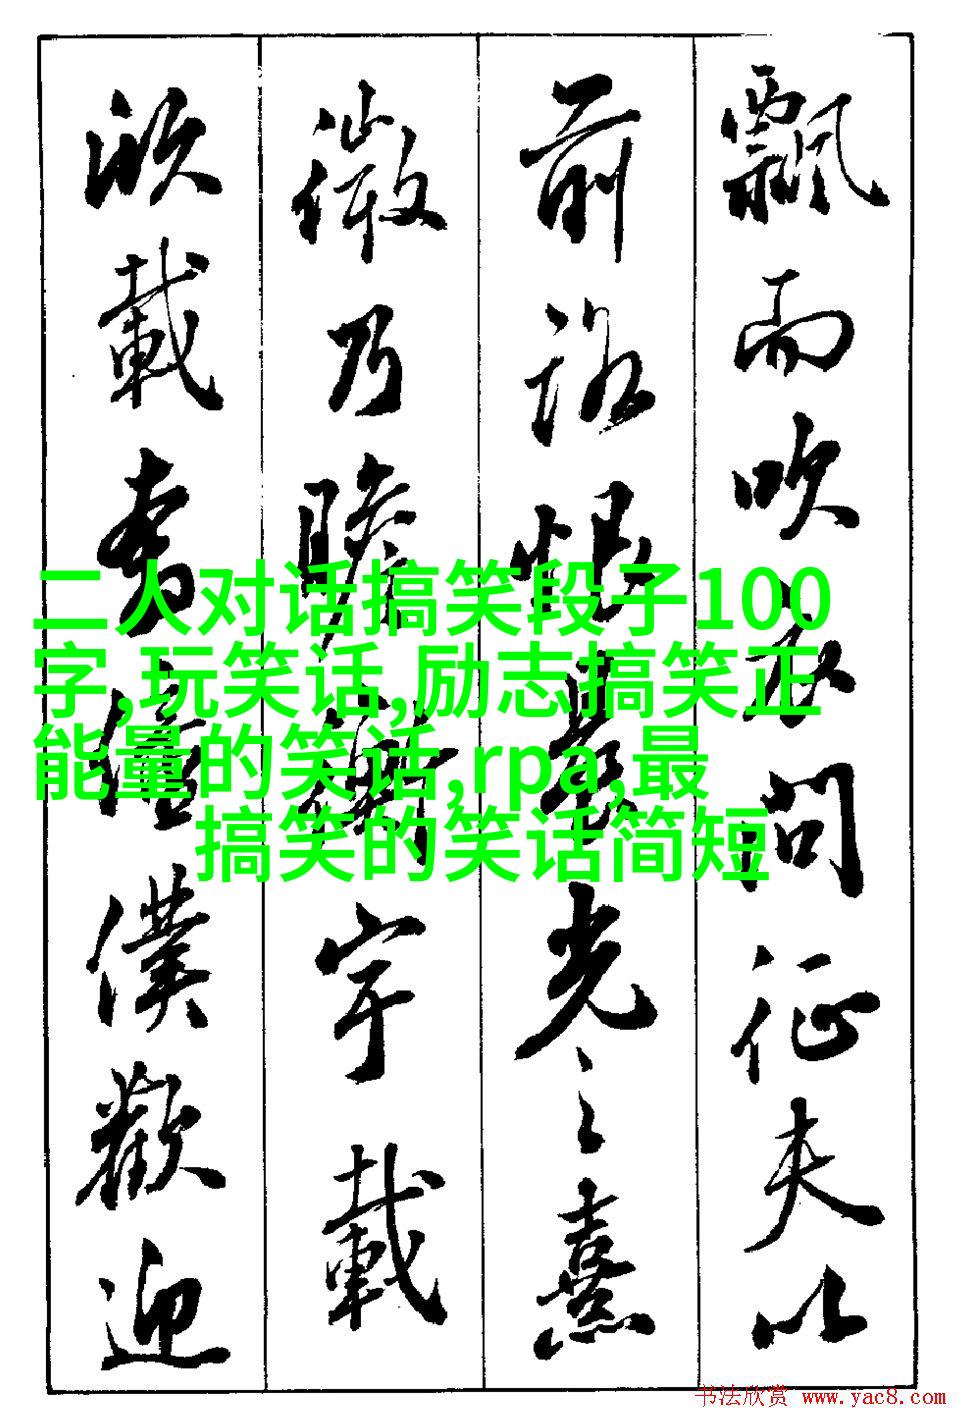 飄而吹衣問征夫以
前路恨晨光之熹
微乃瞻衡宇載
欣載奔僮僕歡迎
二人对话搞笑段子100
字,玩笑话,励志搞笑正
能量的笑话,rpa,最
搞笑的笑话简短
书法欣赏 www.yac8.com